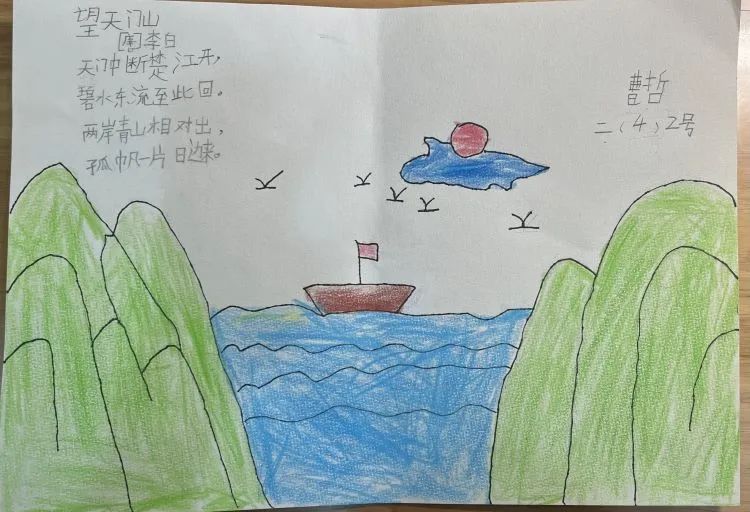 望天门山
[唐]李白
天门中断楚江开,
碧水东流至此回。
两岸青山相对出,
孤帆一片日边来。
曹哲
二(4)2号